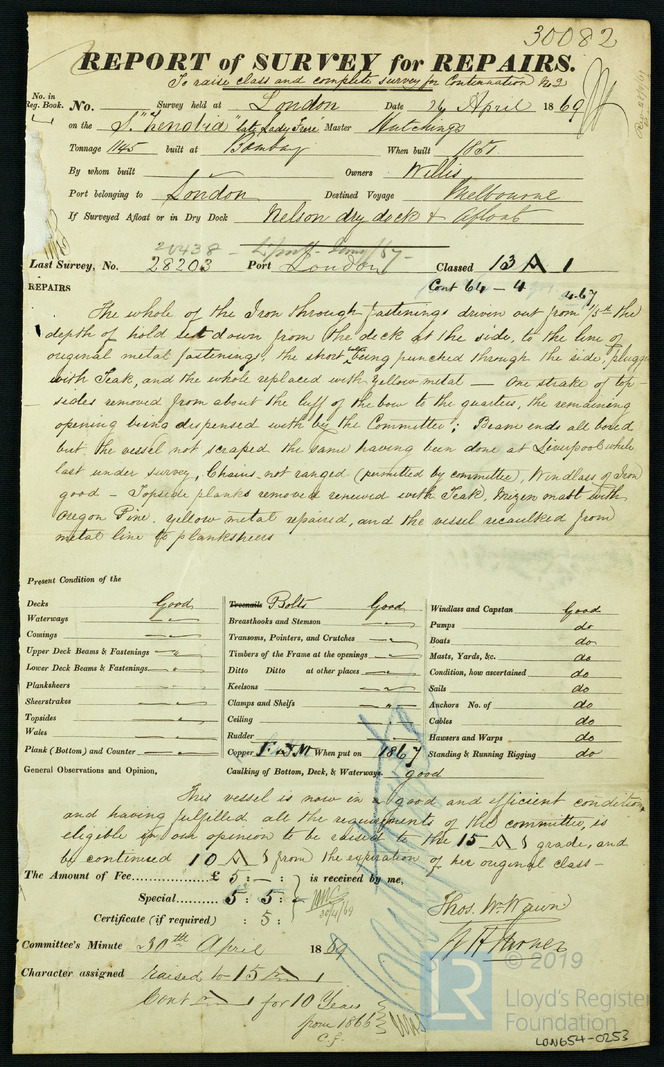 30082
REPORT of SURVEY for REPAIRS.
To raise class and complete survey for Continuation No 2
No. in Reg. Book. No. Survey held at London Date 26 April 1869
on the S. "Zenobia" "late Lady Frere" Master Hutchings
Tonnage 1145 built at Bombay When built 1851
By whom built Owners Willis
Port belonging to London Destined Voyage Melbourne
If Surveyed Afloat or in Dry Dock Nelson dry dock & Afloat
20438
Last Survey, No. 28203 Port London Classed 13 A 1
Cont 64 - 4
4.67
REPAIRS
The whole of the Iron through fastenings driven out from 1/5rd the
depth of hold set down from the deck at the side, to the line of
original metal fastenings, the short bolts being punched through the side, plugged
with Teak, and the whole replaced with yellow metal — One strake of top-
sides removed from about the luff of the bow to the quarters, the remaining
opening being dispensed with by the Committee; Beam ends all bored
but the vessel not scraped the same having been done at Liverpool while
last under survey, Chains not ranged (permitted by committee), Windlass of Iron
good - Topside planks removed renewed with Teak, Mizen mast with
Oregon Pine. Yellow metal repaired, and the vessel recaulked from
metal line to planksheers
Present Condition of the
Decks Good
Waterways
Comings
Upper Deck Beams & Fastenings
Lower Deck Beams & Fastenings
Planksheers
Sheerstrakes
Topsides
Wales
Plank (Bottom) and Counter
Treenails Bolts Good
Breasthooks and Stemson
Transoms, Pointers, and Crutches
Timbers of the Frame at the openings
Ditto Ditto at other places
Keelsons
Clamps and Shelfs
Ceiling
Rudder
Copper F & YM When put on 1867
Windlass and Capstan Good
Pumps do
Boats do
Masts, Yards, &c. do
Condition, how ascertained do
Sails do
Anchors No. of do
Cables do
Hawsers and Warps do
Standing & Running Rigging do
General Observations and Opinion, Caulking of Bottom, Deck, & Waterways good
This vessel is now in a good and efficient condition,
and having fulfilled all the requirements of the committee, is
eligible in our opinion to be raised to the 15 A 1 grade, and
be continued 10 A 1 from the expiration of her original class —
The Amount of Fee £ 5 : - : is received by me,
Special 5 : 5 :
30/4/69
Certificate (if required) : 5 :
Thos. W. Wawn
Committee's Minute 30th April 1869
Character assigned raised to 15 A 1
Cont A 1 for 10 Years
from 1866
C.S.
LR
© 2019
Lloyd's Register
Foundation
LON654-0253